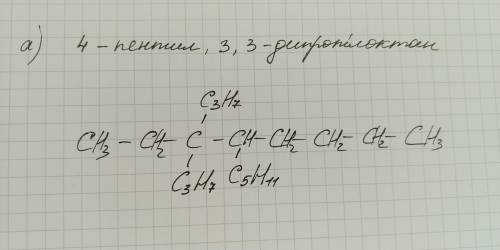 а) 4 - пентил, 3, 3 - дипропилоктан
C3H7
CH3 - CH2 - C - CH - CH2 - CH2 - CH2 - CH3
C3H7 C5H11